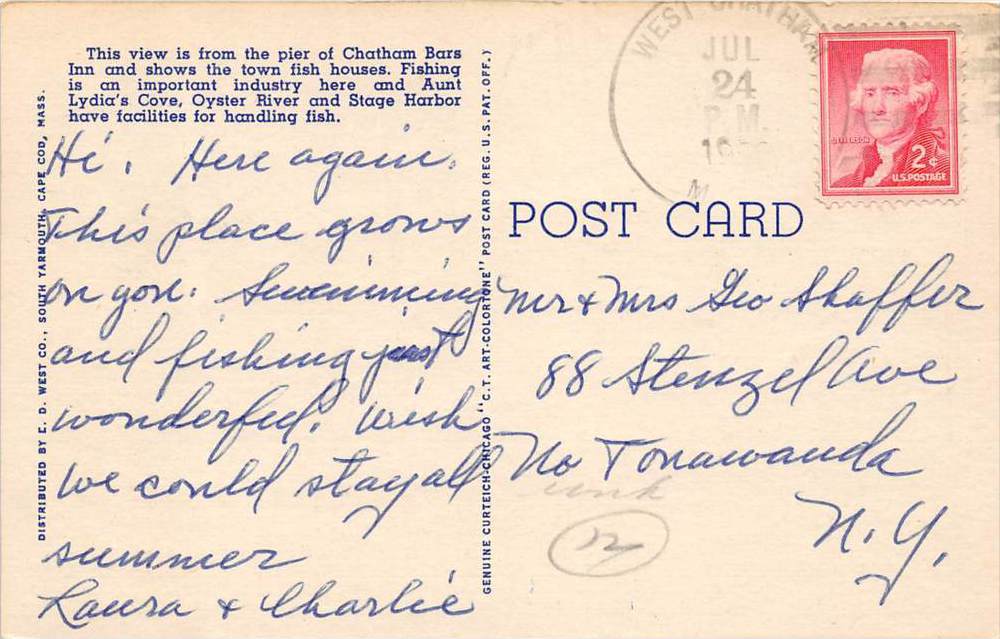 This view is from the pier of Chatham Bars
Inn and shows the town fish houses. Fishing
is an important industry here and Aunt
Lydia's Cove, Oyster River and Stage Harbor
have facilities for handling fish.
Hi. Here again.
This place grows
on you. Swimming
and fishing just
wonderful. Wish
we could stay all
summer
Laura & Charlie
DISTRIBUTED BY E. D. WEST CO., SOUTH YARMOUTH, CAPE COD, MASS.
GENUINE CURTEICH-CHICAGO "C.T. ART-COLORTONE" POST CARD (REG. U.S. PAT. OFF.)
WEST CHATHAM
JUL
24
P.M.
JEFFERSON
2¢
U.S. POSTAGE
POST CARD
Mr & Mrs Geo Shaffer
88 Stenzel Ave
No Tonawanda
N.Y.
12